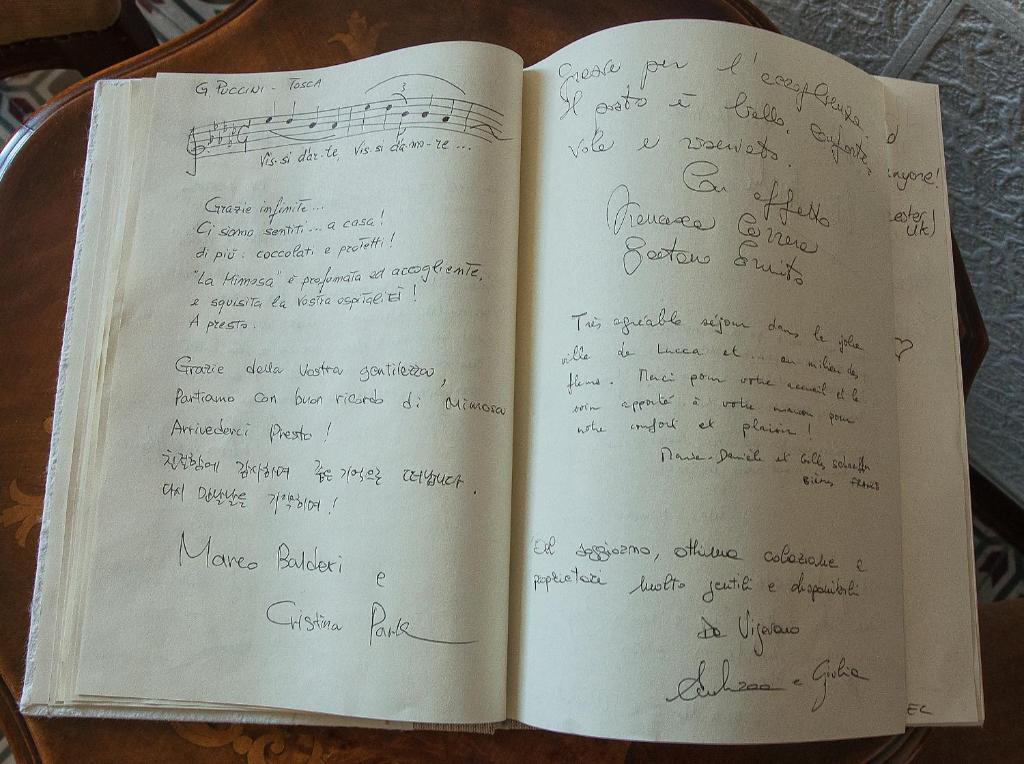 G. PUCCINI - TOSCA
3
Vis-si d'ar-te, vis-si d'a-mo-re ...
Grazie infinite ...
Ci siamo sentiti ... a casa!
di più: coccolati e protetti!
"La Mimosa" è profumata ed accogliente,
e squisita la vostra ospitalità!
A presto.
Grazie della Vostra gentilezza,
Partiamo con buon ricordo di Mimosa
Arrivederci Presto!
친절함에 감사하며 좋은 기억으로 떠납니다.
다시 만날날을 기약하며!
Marco Balderi
e
Cristina Park
Grazie per l'accoglienza.
Il posto è bello, conforte,
vole e riservato.
Con affetto
Francesca Carrera
Gaetano
Très agréable séjour dans la jolie
ville de Lucca et ... au milieu des
fleurs. Merci pour votre accueil et le
soin apporté à votre maison pour
notre confort et plaisir!
Marie-Danièle et Gilles
FRANCE
soggiorno, ottima colazione e
proprietari molto gentili e disponibili
Da Vigevano
e Giulia
UK)
EL